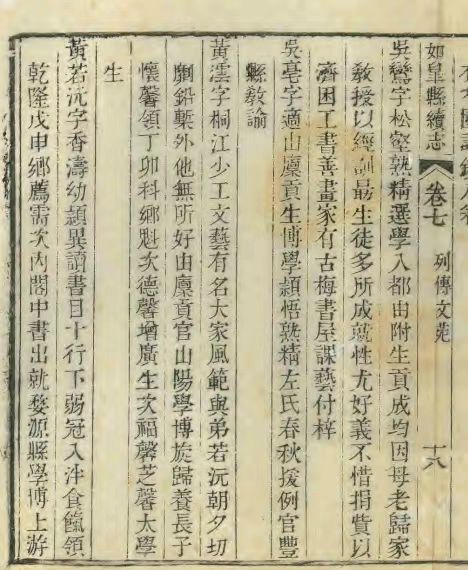 如皋縣續志 卷七 列傳文苑 十六
吳鸞字松壑熟精選學入都由附生貢成均因母老歸家
教授以經訓最生徒多所成就性尤好義不惜捐貲以
濟困工書善畫家有古梅書屋課藝付梓
吳亳字適由廩貢生博學穎悟熟精左氏春秋援例官豐
縣教諭
黃澐字桐江少工文藝有名大家風範與弟若沅朝夕切
劘鉛槧外他無所好由廩貢官山陽學博旋歸養長子
懷馨領丁卯科鄉魁次德馨增廣生次福馨芝馨太學
生
黃若沅字香濤幼穎異讀書目十行下弱冠入泮食餼領
乾隆戊申鄉薦需次內閣中書出就婺源縣學博上游